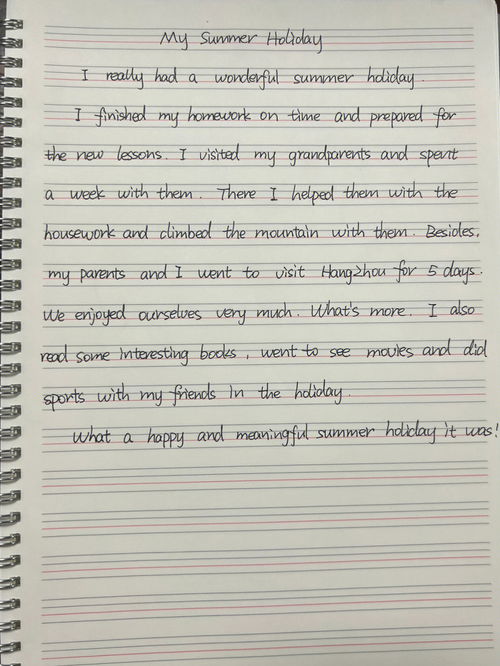 My Summer Holiday
I really had a wonderful summer holiday.
I finished my homework on time and prepared for
the new lessons. I visited my grandparents and spent
a week with them. There I helped them with the
housework and climbed the mountain with them. Besides,
my parents and I went to visit Hangzhou for 5 days.
We enjoyed ourselves very much. What's more. I also
read some interesting books, went to see movies and did
sports with my friends in the holiday.
What a happy and meaningful summer holiday it was!